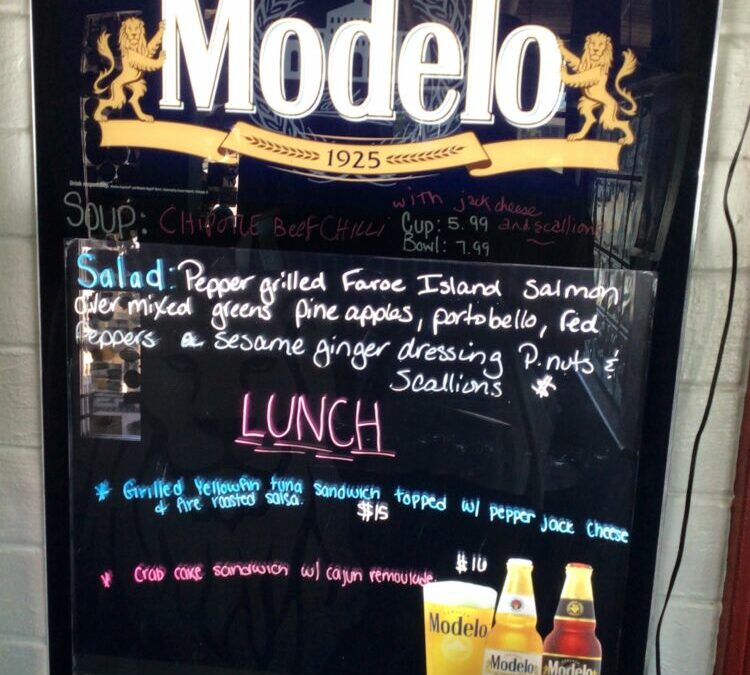 Modelo
1925
with jack cheese
Soup: CHIPOTLE BEEF CHILLI Cup: 5.99 and scallions
Bowl: 7.99
Salad: Pepper grilled Faroe Island Salmon,
over mixed greens pine apples, portobello, red
Peppers a sesame ginger dressing P.nuts &
Scallions
LUNCH
* Grilled Yellowfin tuna sandwich topped w/ pepper jack cheese
& fire roasted salsa. $15
* Crab cake sandwich w/ cajun remoulade.
Modelo
Modelo
Modelo